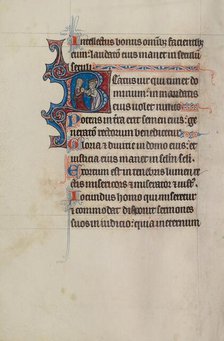 Intellectus bonus omĩbȝ facientibȝ
eum: laudatio eius manet in seculũ
seculi
Beatus uir qui timet do
minum: in mandatis
eius uolet nimis
Potens in terra erit semen eius: ge
neratio rectorum benedicetur
Gloria et diuitie in domo eius: et
iusticia eius manet in seculũ seculi
Exortum est in tenebris lumen
misericors et miserator et iustꝰ
Iocundus homo qui miseretur
et commodat disponet sermones
suos in iudicio: quia in eternum